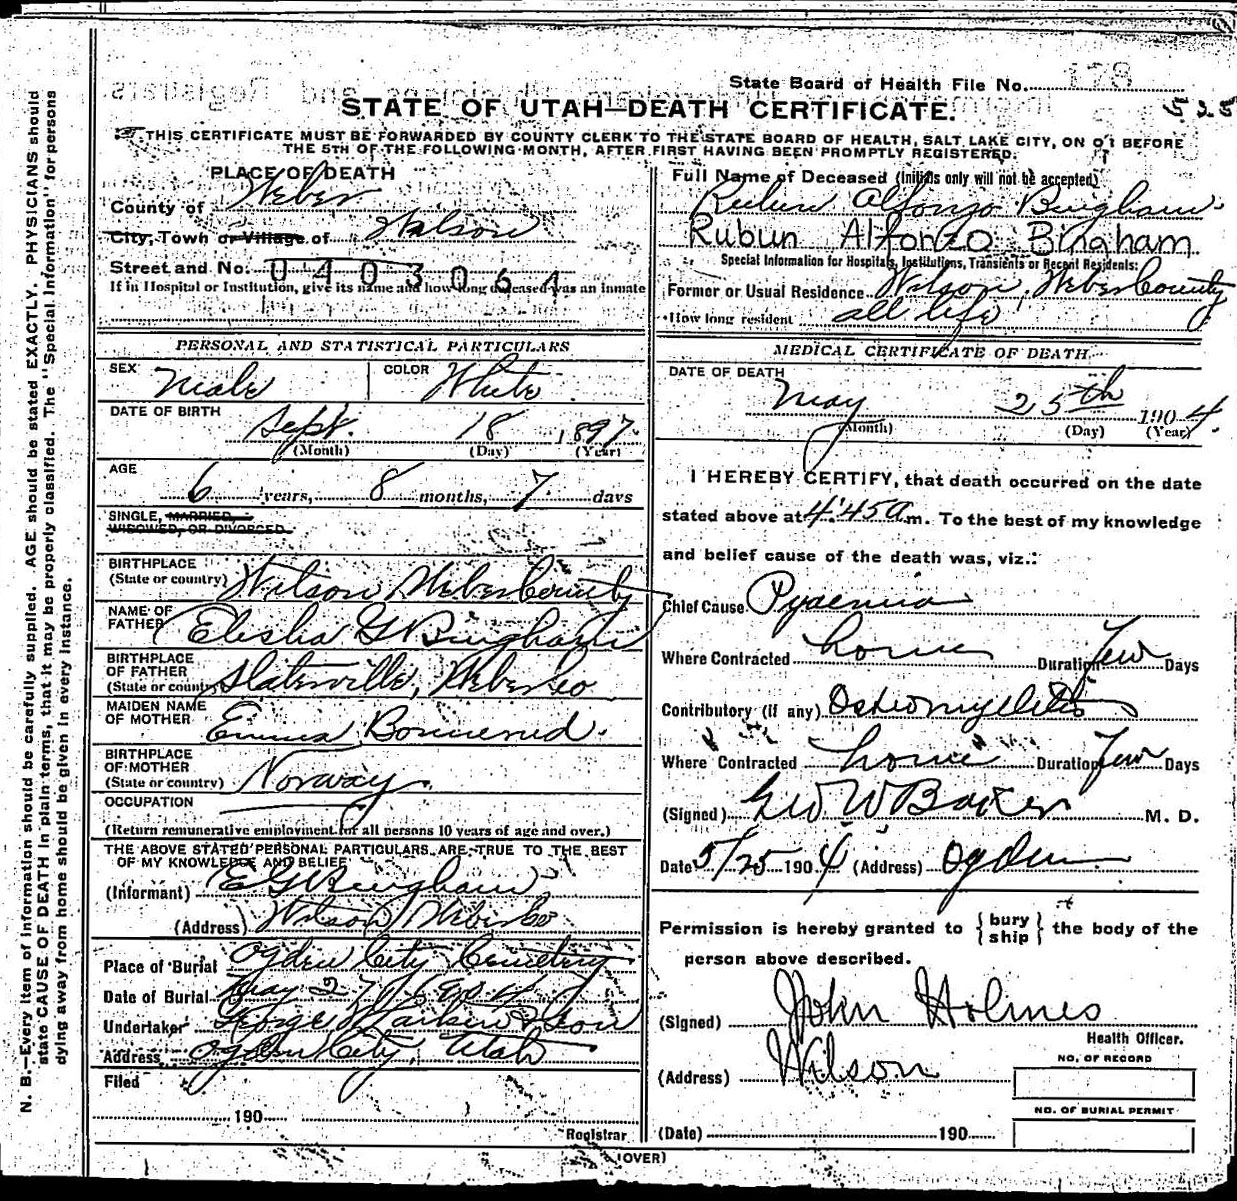 State Board of Health File No.
STATE OF UTAH—DEATH CERTIFICATE.
525
THIS CERTIFICATE MUST BE FORWARDED BY COUNTY CLERK TO THE STATE BOARD OF HEALTH, SALT LAKE CITY, ON OR BEFORE
THE 5TH OF THE FOLLOWING MONTH, AFTER FIRST HAVING BEEN PROMPTLY REGISTERED.
PLACE OF DEATH
County of Weber
City, Town or Village of Wilson
Street and No. 0403064
If in Hospital or Institution, give its name and how long deceased was an inmate
PERSONAL AND STATISTICAL PARTICULARS
SEX Male COLOR White
DATE OF BIRTH Sept. 18 1897
(Month) (Day) (Year)
AGE 6 years, 8 months, 7 days
SINGLE, MARRIED,
WIDOWED, OR DIVORCED
BIRTHPLACE
(State or country) Wilson Weber County
NAME OF
FATHER Elisha G Bingham
BIRTHPLACE
OF FATHER
(State or country) Slaterville, Weber Co
MAIDEN NAME
OF MOTHER Emma
BIRTHPLACE
OF MOTHER
(State or country) Norway
OCCUPATION
(Return remunerative employment for all persons 10 years of age and over.)
THE ABOVE STATED PERSONAL PARTICULARS ARE TRUE TO THE BEST
OF MY KNOWLEDGE AND BELIEF
(Informant) E G Bingham
(Address) Wilson Weber Co
Place of Burial Ogden City Cemetery
Date of Burial May 27 1904
Undertaker George W Larkin & Son
Address Ogden City, Utah
Filed
190
Registrar
Full Name of Deceased (Initials only will not be accepted)
Ruben Alfonzo Bingham
Rubun Alfonzo Bingham
Special Information for Hospitals, Institutions, Transients or Recent Residents:
Former or Usual Residence Wilson, Weber County
How long resident all life
MEDICAL CERTIFICATE OF DEATH
DATE OF DEATH
May 25th 1904.
(Month) (Day) (Year)
I HEREBY CERTIFY, that death occurred on the date
stated above at 4:45 a m. To the best of my knowledge
and belief cause of the death was, viz.:
Chief Cause Pyaemia
Where Contracted home Duration few Days
Contributory (if any) Osteomyelitis
Where Contracted home Duration few Days
(Signed) Geo W Baker M. D.
Date 5/25 1904 (Address) Ogden
Permission is hereby granted to { bury ship } the body of the
person above described.
(Signed) John Holmes
Health Officer.
(Address) Wilson
NO. OF RECORD
NO. OF BURIAL PERMIT
(Date) 190
(OVER)
N. B.—Every item of information should be carefully supplied. AGE should be stated EXACTLY. PHYSICIANS should
state CAUSE OF DEATH in plain terms, that it may be properly classified. The "Special Information" for persons
dying away from home should be given in every instance.